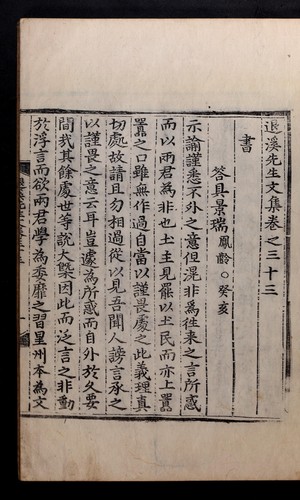 退溪先生文集卷之三十三
書
答具景瑞鳳齡○癸亥
示諭謹悉不外之意但滉非爲徃来之言所惑
而以兩君爲非也土主見罷以土民而亦上囂
囂之口雖無作過自當以謹畏處之此義理真
切處故請且勿相過從以見吾聞人謗言承之
以謹畏之意云耳豈遽爲所惑而自外於久要
間哉其餘處世等說大槩因此而泛言之非動
於浮言而欲兩君學爲委靡之習星州本爲文